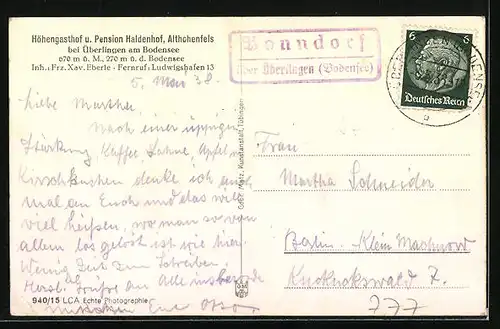 Höhengasthof u. Pension Haldenhof, Althohenfels
bei Überlingen am Bodensee
670 m ü. M., 270 m ü. d. Bodensee
Inh.: Frz. Xav. Eberle - Fernruf: Ludwigshafen 13
Bonndorf
über Überlingen (Bodensee)
6 6
Deutsches Reich
5. Mai 38.
Liebe Martha!
Nach einer üppigen
Stärkung Kaffee Sahne, Apfel u.
Kirschkuchen denke ich
mal an Euch und das will
viel heißen, wo man so von
allem los gelöst ist wie hier.
Wenig Zeit zum Schreiben.
Herzl. Grüße an Alle
Gebr. Metz, Kunstanstalt, Tübingen
Frau
Martha Schneider
Berlin - Klein Machnow
7.
777
940/15 LCA Echte Photographie